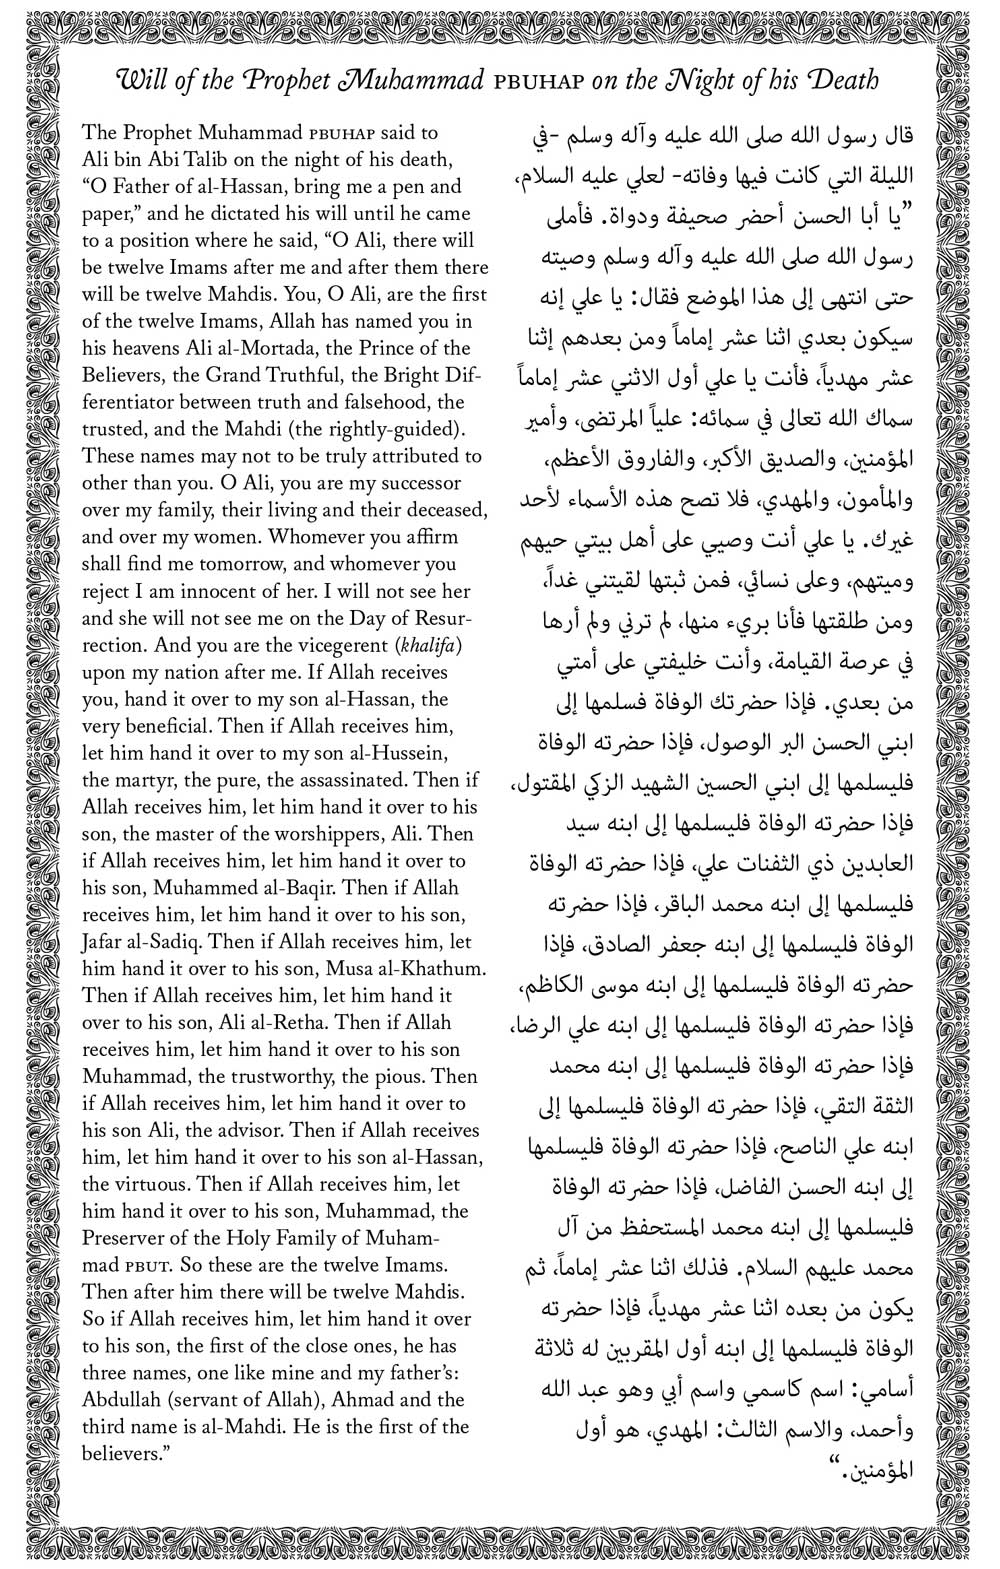 Will of the Prophet Muhammad PBUHAP on the Night of his Death
The Prophet Muhammad PBUHAP said to
Ali bin Abi Talib on the night of his death,
“O Father of al-Hassan, bring me a pen and
paper,” and he dictated his will until he came
to a position where he said, “O Ali, there will
be twelve Imams after me and after them there
will be twelve Mahdis. You, O Ali, are the first
of the twelve Imams, Allah has named you in
his heavens Ali al-Mortada, the Prince of the
Believers, the Grand Truthful, the Bright Dif-
ferentiator between truth and falsehood, the
trusted, and the Mahdi (the rightly-guided).
These names may not to be truly attributed to
other than you. O Ali, you are my successor
over my family, their living and their deceased,
and over my women. Whomever you affirm
shall find me tomorrow, and whomever you
reject I am innocent of her. I will not see her
and she will not see me on the Day of Resur-
rection. And you are the vicegerent (khalifa)
upon my nation after me. If Allah receives
you, hand it over to my son al-Hassan, the
very beneficial. Then if Allah receives him,
let him hand it over to my son al-Hussein,
the martyr, the pure, the assassinated. Then if
Allah receives him, let him hand it over to his
son, the master of the worshippers, Ali. Then
if Allah receives him, let him hand it over to
his son, Muhammed al-Baqir. Then if Allah
receives him, let him hand it over to his son,
Jafar al-Sadiq. Then if Allah receives him, let
him hand it over to his son, Musa al-Khathum.
Then if Allah receives him, let him hand it
over to his son, Ali al-Retha. Then if Allah
receives him, let him hand it over to his son
Muhammad, the trustworthy, the pious. Then
if Allah receives him, let him hand it over to
his son Ali, the advisor. Then if Allah receives
him, let him hand it over to his son al-Hassan,
the virtuous. Then if Allah receives him, let
him hand it over to his son, Muhammad, the
Preserver of the Holy Family of Muham-
mad PBUT. So these are the twelve Imams.
Then after him there will be twelve Mahdis.
So if Allah receives him, let him hand it over
to his son, the first of the close ones, he has
three names, one like mine and my father’s:
Abdullah (servant of Allah), Ahmad and the
third name is al-Mahdi. He is the first of the
believers.”
قال رسول الله صلى الله عليه وآله وسلم -في
الليلة التي كانت فيها وفاته- لعلي عليه السلام،
”يا أبا الحسن أحضر صحيفة ودواة. فأملى
رسول الله صلى الله عليه وآله وسلم وصيته
حتى انتهى إلى هذا الموضع فقال: يا علي إنه
سيكون بعدي اثنا عشر إماماً ومن بعدهم إثنا
عشر مهدياً، فأنت يا علي أول الاثني عشر إماماً
سماك الله تعالى في سمائه: علياً المرتضى، وأمير
المؤمنين، والصديق الأكبر، والفاروق الأعظم،
والمأمون، والمهدي، فلا تصح هذه الأسماء لأحد
غيرك. يا علي أنت وصيي على أهل بيتي حيهم
وميتهم، وعلى نسائي، فمن ثبتها لقيتني غداً،
ومن طلقتها فأنا بريء منها، لم ترني ولم أرها
في عرصة القيامة، وأنت خليفتي على أمتي
من بعدي. فإذا حضرتك الوفاة فسلمها إلى
ابني الحسن البر الوصول، فإذا حضرته الوفاة
فليسلمها إلى ابني الحسين الشهيد الزكي المقتول،
فإذا حضرته الوفاة فليسلمها إلى ابنه سيد
العابدين ذي الثفنات علي، فإذا حضرته الوفاة
فليسلمها إلى ابنه محمد الباقر، فإذا حضرته
الوفاة فليسلمها إلى ابنه جعفر الصادق، فإذا
حضرته الوفاة فليسلمها إلى ابنه موسى الكاظم،
فإذا حضرته الوفاة فليسلمها إلى ابنه علي الرضا،
فإذا حضرته الوفاة فليسلمها إلى ابنه محمد
الثقة التقي، فإذا حضرته الوفاة فليسلمها إلى
ابنه علي الناصح، فإذا حضرته الوفاة فليسلمها
إلى ابنه الحسن الفاضل، فإذا حضرته الوفاة
فليسلمها إلى ابنه محمد المستحفظ من آل
محمد عليهم السلام. فذلك اثنا عشر إماماً، ثم
يكون من بعده اثنا عشر مهدياً، فإذا حضرته
الوفاة فليسلمها إلى ابنه أول المقربين له ثلاثة
أسامي: اسم كاسمي واسم أبي وهو عبد الله
وأحمد، والاسم الثالث: المهدي، هو أول
المؤمنين.“